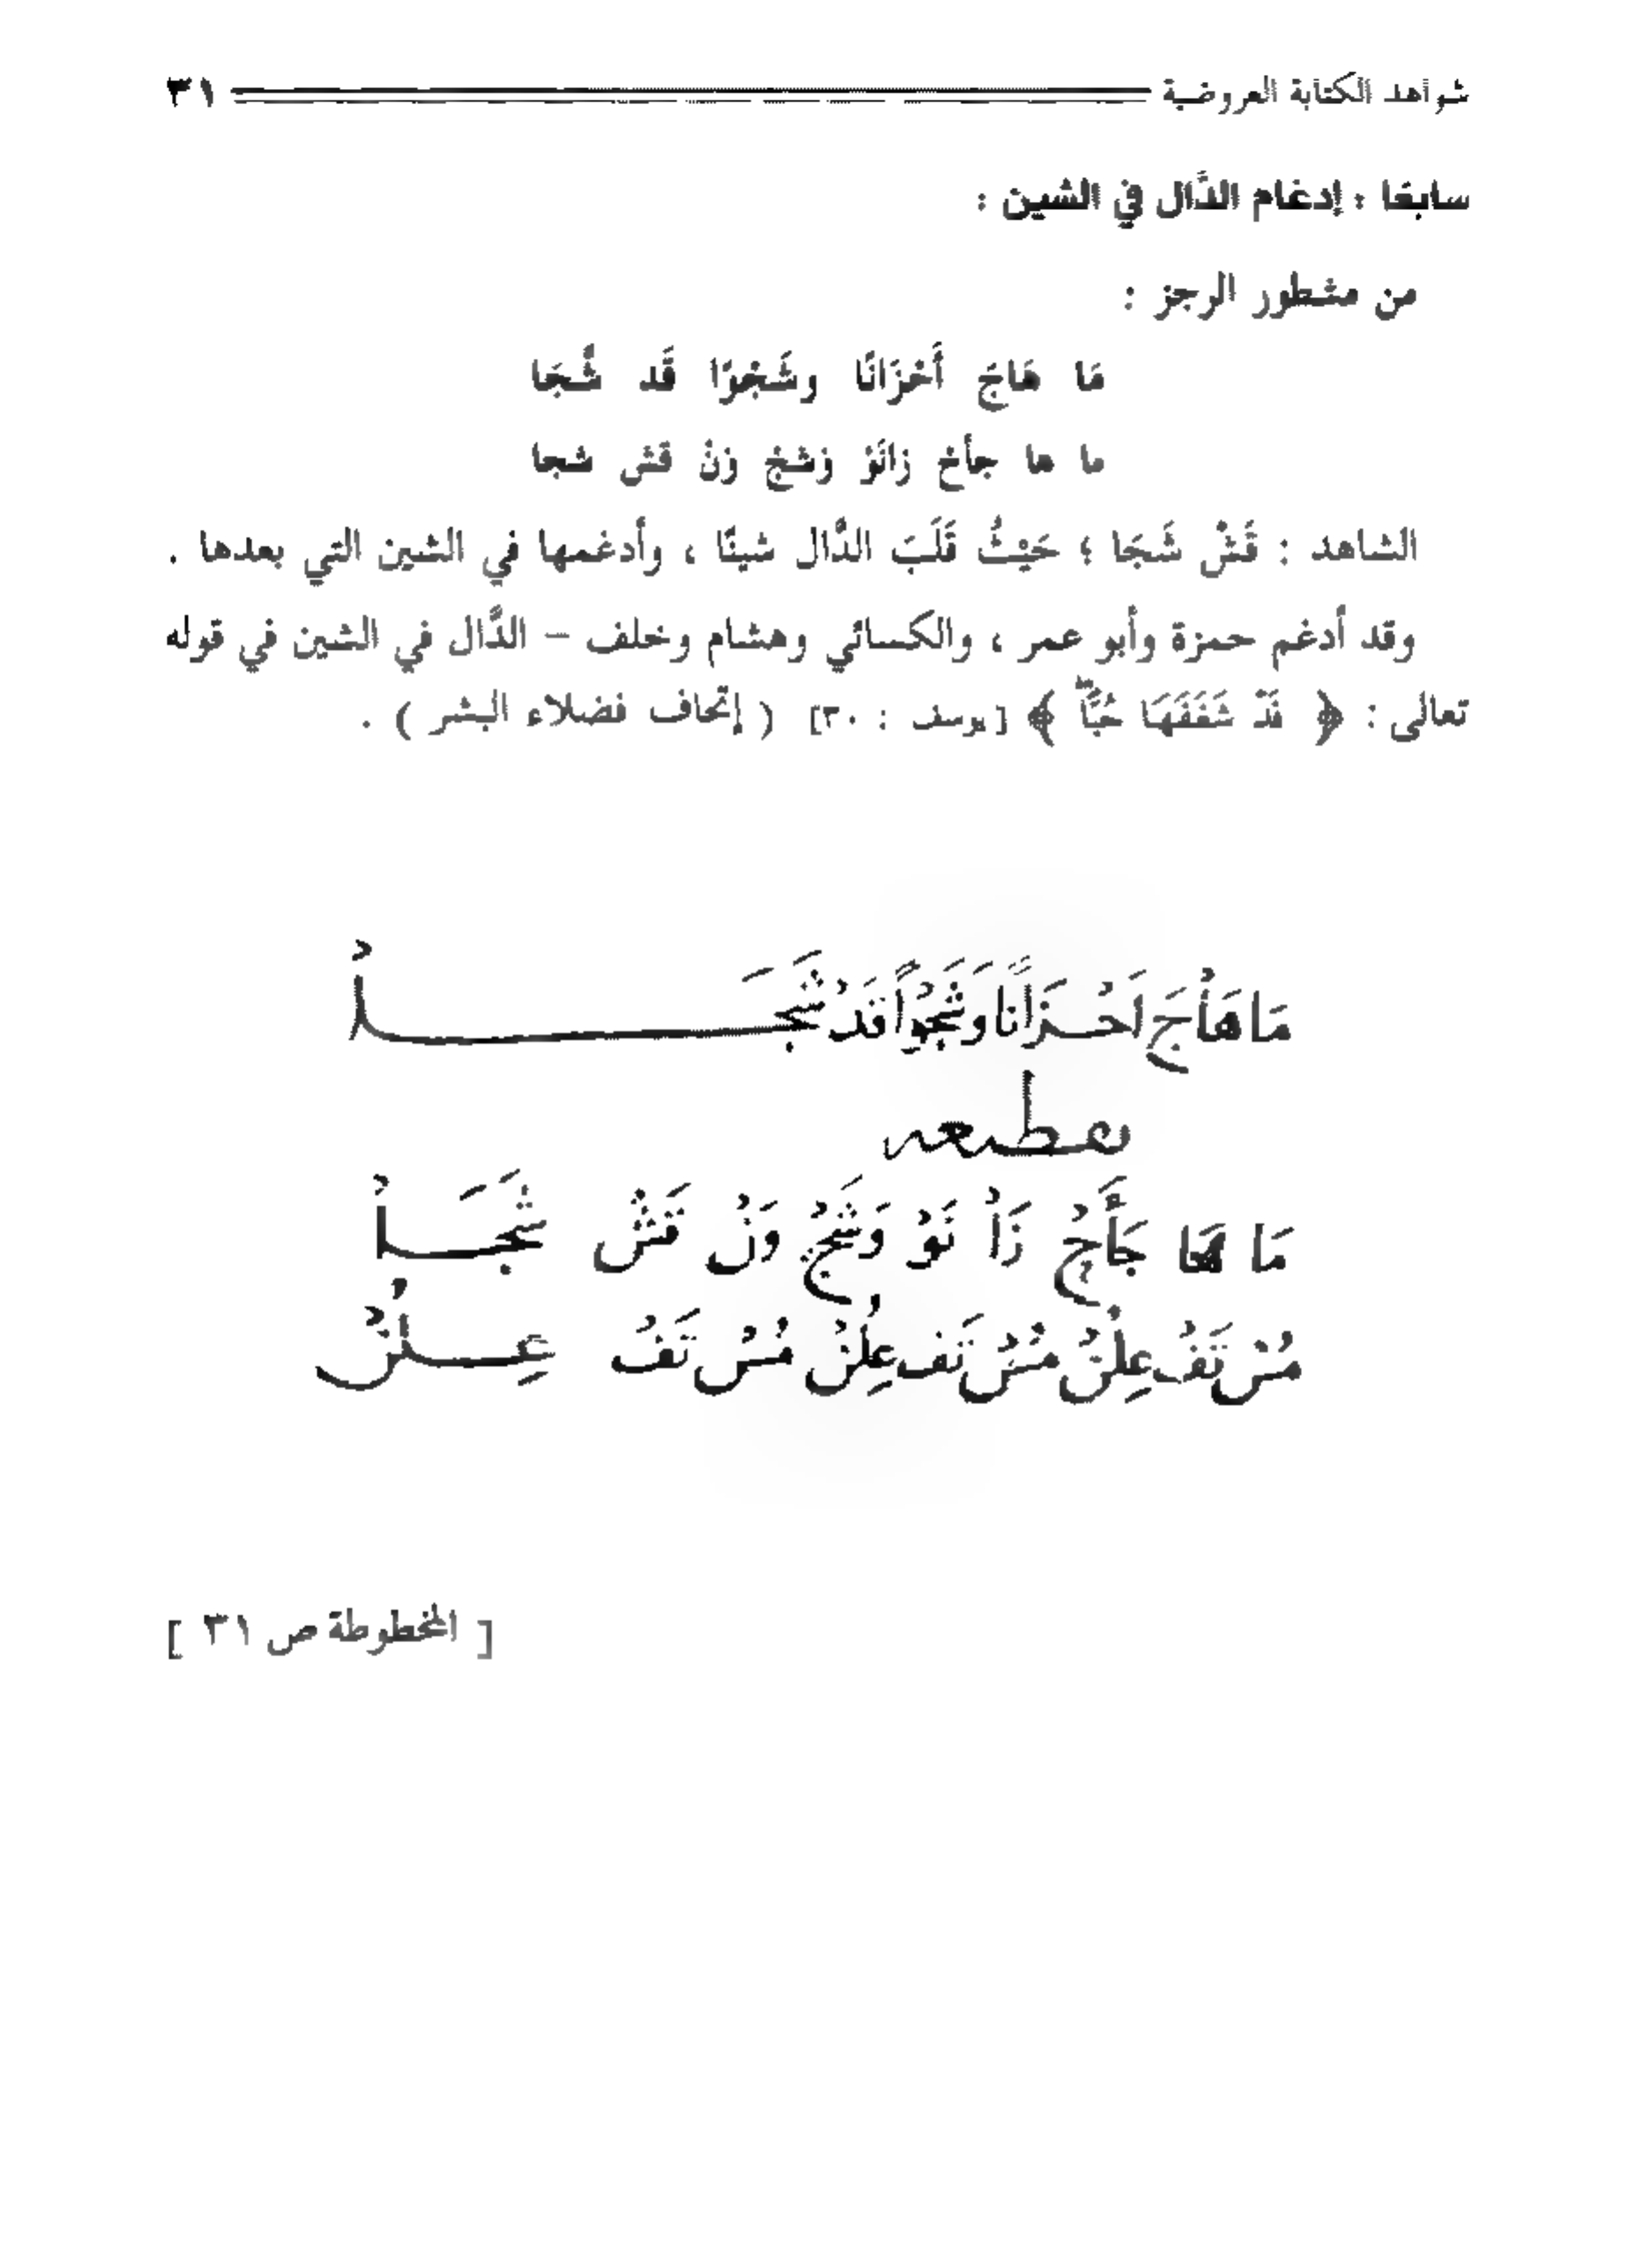 شواهد الكتابة العروضية ٣١
سابعًا : إدغام الدَّال في الشين :
من مشطور الرجز :
مَا هَاجَ أَحْزَانًا وشَجْوًا قَد شَّجَا
ما ها جأحْ زانَوْ وَشجْ وَنْ قشْ شجا
الشاهد : قَشْ شَجَا ؛ حَيْثُ قَلَبَ الدَّال شينًا ، وأدغمها في الشين التي بعدها .
وقد أدغم حمزة وأبو عمر ، والكسائي وهشام وخلف – الدَّال في الشين في قوله
تعالى : ﴿ قَدْ شَغَفَهَا حُبًّا ﴾ [يوسف : ٣٠] ( إتحاف فضلاء البشر ) .
مَا هَاْجَ اَحْزَانًا وَشَجْوًا قَدْ شَجَاْ
تقطيعه
مَا هَا جَأَحْ زَاْ نَوْ وَشَجْ وَنْ قَشْ شَجَاْ
مُسْ تَفْ عِلُنْ مُسْ تَفْ عِلُنْ مُسْ تَفْ عِلُنْ
[ المخطوطة ص ٣١ ]